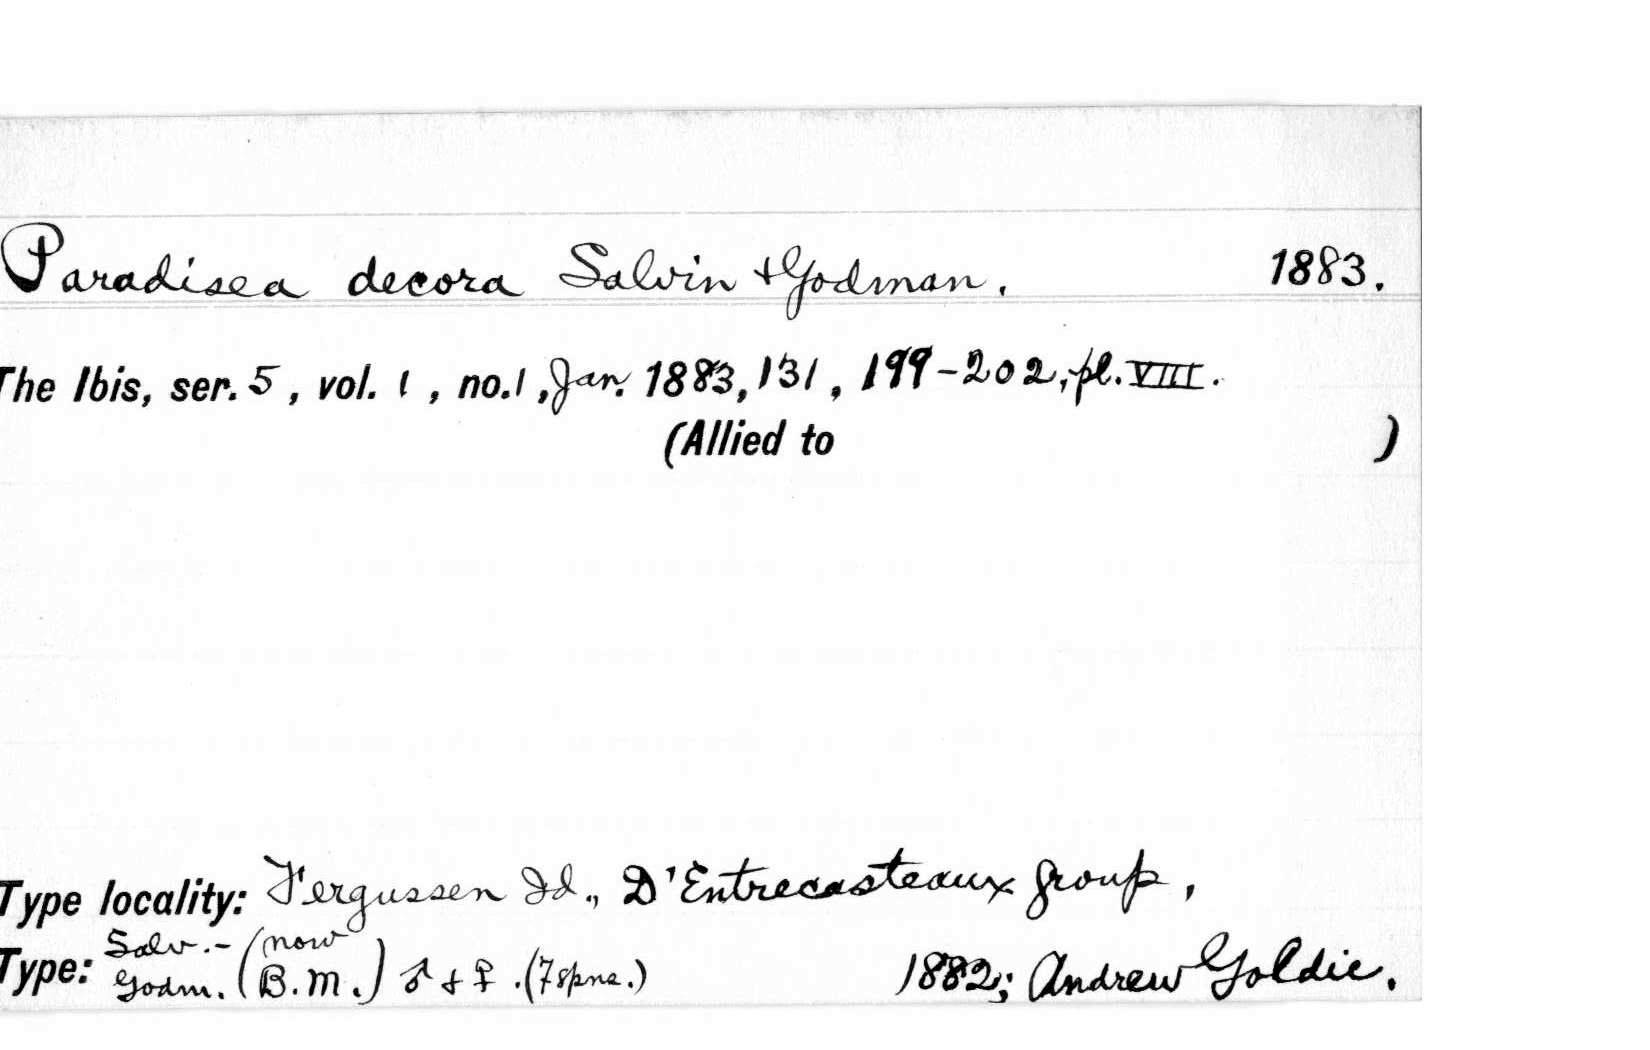 Paradisea decora Salvin & Godman. 1883.
The Ibis, ser. 5, vol. 1, no. 1, Jan. 1883, 131, 199-202, pl. VIII.
(Allied to )
Type locality: Fergussen Id., D'Entrecasteaux group,
Type: Salv.-Godm. (now B.M.) ♂ + ♀. (7 spns.) 1882; Andrew Goldie.